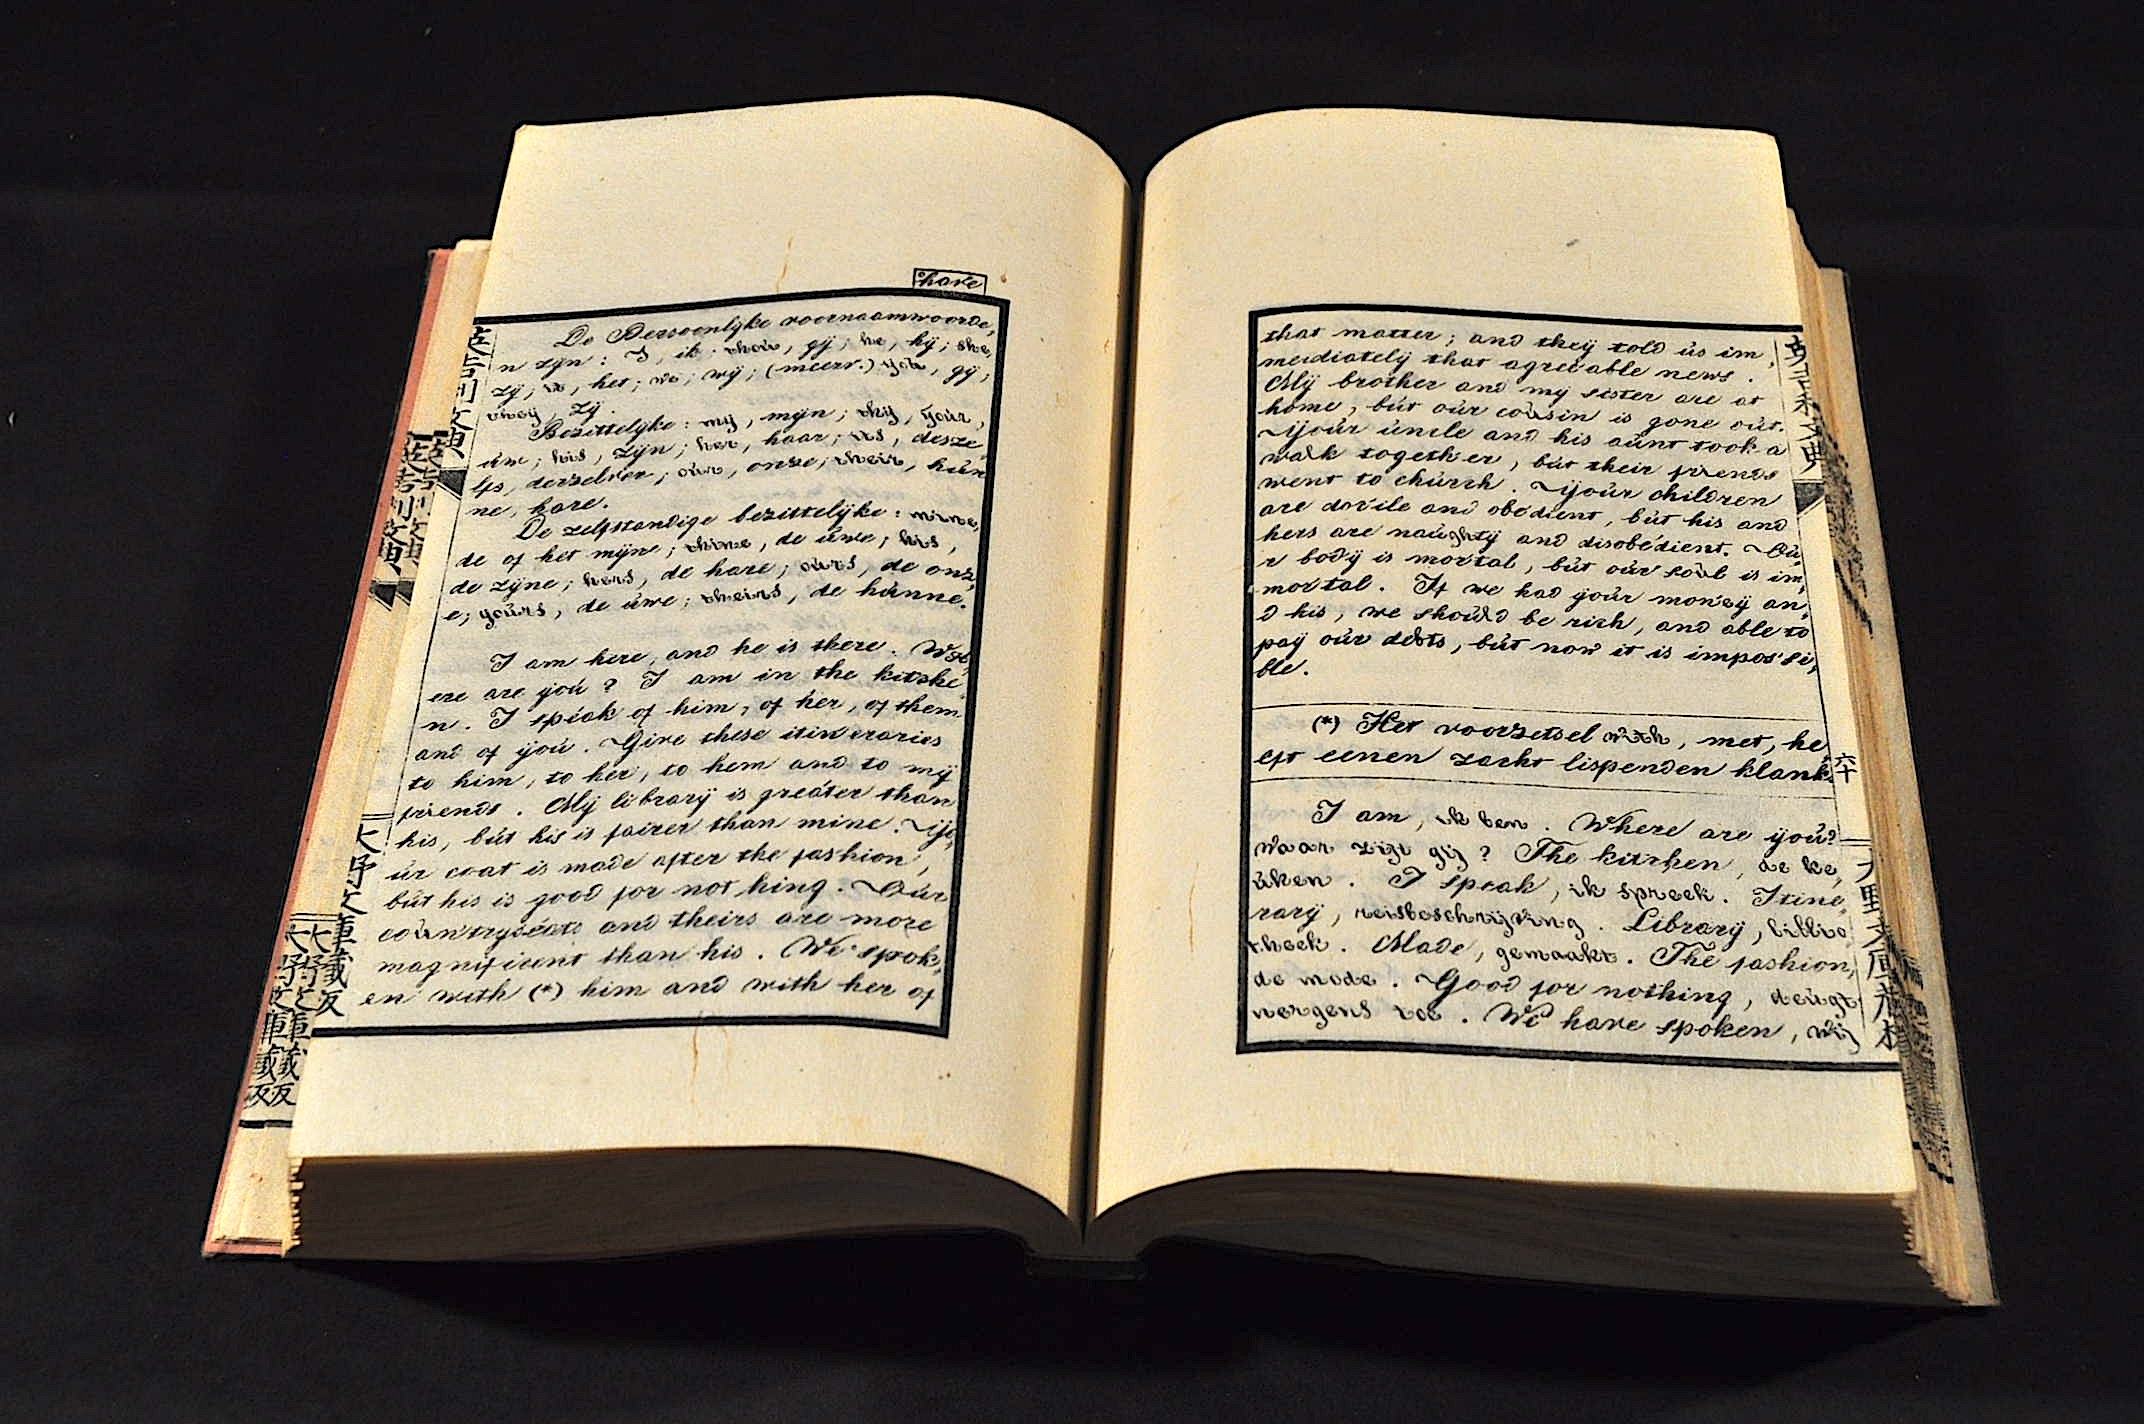 have
De Persoonlyke voornaamwoorde,
n zyn : I, ik ; thou, gÿ ; he, hÿ ; she,
zÿ ; it, het ; we ; wÿ ; (meerv.) you, gÿ ;
they, zÿ.
Bezittelyke : my, myn ; thÿ, your,
uw ; his, zyn ; her, haar ; its, desze
lfs, derzelver ; our, onze ; their, hun
ne, hare.
De zelfstandige bezittelÿke : mine,
de of het myne ; thine, de uwe ; his,
de zyne ; hers, de hare ; ours, de onz,
e ; yours, de uwe ; theirs, de hunne.
I am here, and he is there. Wh,
ere are you ? I am in the kitche
n. I speak of him, of her, of them
and of you. Give these itineraries
to him, to her, to hem and to mÿ
friends. Mÿ librarÿ is greater than
his, but his is fairer than mine. Yo,
ur coat is made after the fashion,
but his is good for not hing. Our
countryseats and theirs are more
magnificent than his. We spok,
en with (*) him and with her of
大野文庫藏反
that matter ; and theÿ told us im,
mediatelÿ that agreeable news.
Mÿ brother and my sister are at
home, but our cousin is gone out.
Your uncle and his aunt took a
walk together, but their friends
went to church. Your children
are docile and obedient, but his and
hers are naughtÿ and disobedient. Ou
r bodÿ is mortal, but our soul is im,
mortal. If we had your moneÿ an,
d his, we should be rich, and able to
paÿ our debts, but now it is impossi,
ble.
(*) Het voorzetsel with, met, he
eft eenen zacht lispenden klank.
I am, ik ben. Where are you?
waar zijt gij ? The kitchen, de ke,
uken. I speak, ik spreek. Itine,
rarÿ, reisbeschrijving. Librarÿ, biblio
theek. Made, gemaakt. The fashion,
de mode. Good for nothing, deugt
nergens toe. We have spoken, wij
六十